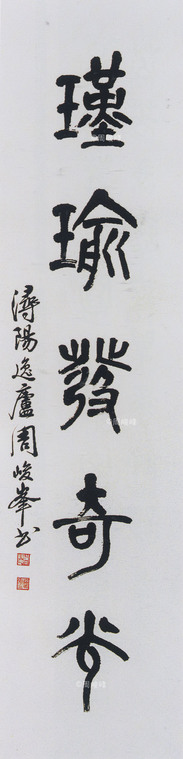 瑾瑜發奇光
潯陽逸廬周峻峯书